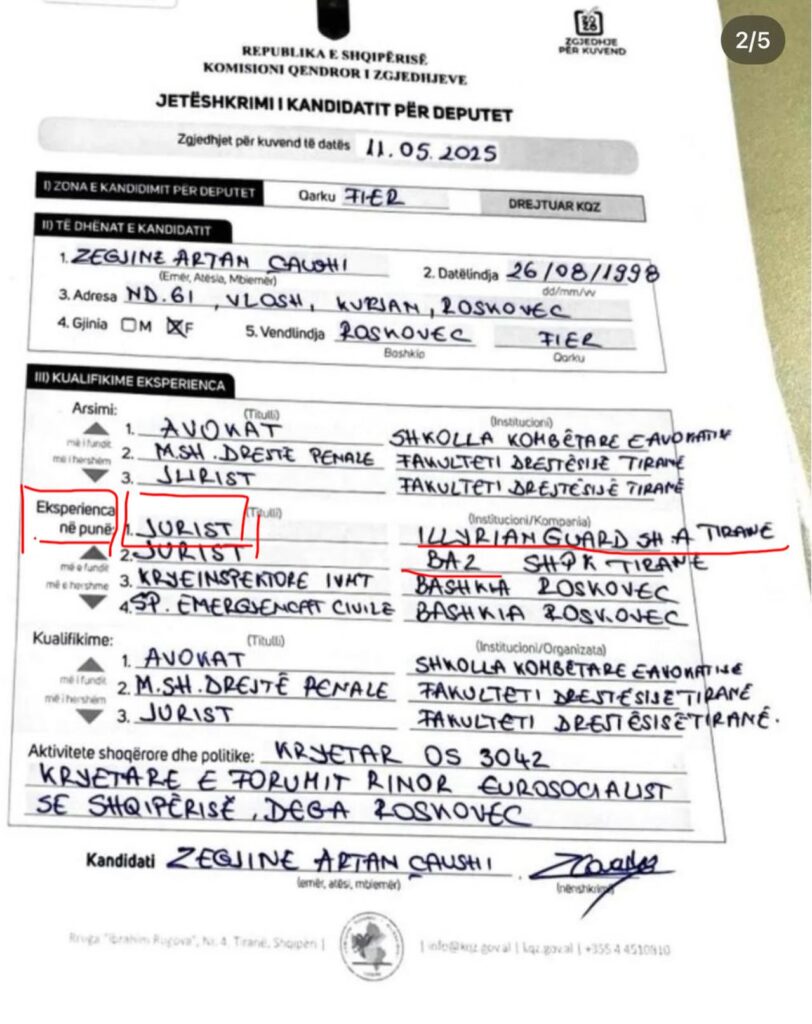 2/5
2025
ZGJEDHJE
PËR KUVEND
REPUBLIKA E SHQIPËRISË
KOMISIONI QENDROR I ZGJEDHJEVE
JETËSHKRIMI I KANDIDATIT PËR DEPUTET
Zgjedhjet për kuvend të datës 11.05.2025
I) ZONA E KANDIDIMIT PËR DEPUTET Qarku FIER DREJTUAR KQZ
II) TË DHËNAT E KANDIDATIT
1. ZEGJINE ARTAN ÇAUSHI 2. Datëlindja 26/08/1998
(Emër, Atësia, Mbiemër) dd/mm/vv
3. Adresa ND.61, VLOSH, KURJAN, ROSKOVEC
4. Gjinia M F 5. Vendlindja ROSKOVEC FIER
Bashkia Qarku
III) KUALIFIKIME EKSPERIENCA
Arsimi: (Titulli) (Institucioni)
1. AVOKAT SHKOLLA KOMBËTARE E AVOKATISË
më i fundit
2. M.SH. DREJTË PENALE FAKULTETI DREJTËSISË TIRANË
më i hershëm
3. JURIST FAKULTETI DREJTËSISË TIRANË
Eksperienca (Titulli) (Institucioni/Kompania)
në punë: 1. JURIST ILLYRIAN GUARD SH.A TIRANË
2. JURIST BA2 SHPK TIRANË
më e fundit
3. KRYEINSPEKTORE IVMT BASHKIA ROSKOVEC
më e hershme
4. SP. EMERGJENCAT CIVILE BASHKIA ROSKOVEC
Kualifikime: (Titulli) (Institucioni/Organizata)
1. AVOKAT SHKOLLA KOMBËTARE E AVOKATISË
më i fundit
2. M.SH. DREJTË PENALE FAKULTETI DREJTËSISË TIRANË
më i hershëm
3. JURIST FAKULTETI DREJTËSISË TIRANË.
Aktivitete shoqërore dhe politike: KRYETAR OS 3042
KRYETARE E FORUMIT RINOR EUROSOCIALIST
SE SHQIPËRISË, DEGA ROSKOVEC
Kandidati ZEGJINE ARTAN ÇAUSHI
(emër, atësi, mbiemër) (nënshkrimi)
Rruga "Ibrahim Rugova", Nr. 4. Tiranë, Shqipëri | | info@kqz.gov.al | kqz.gov.al | +355 4 4510810